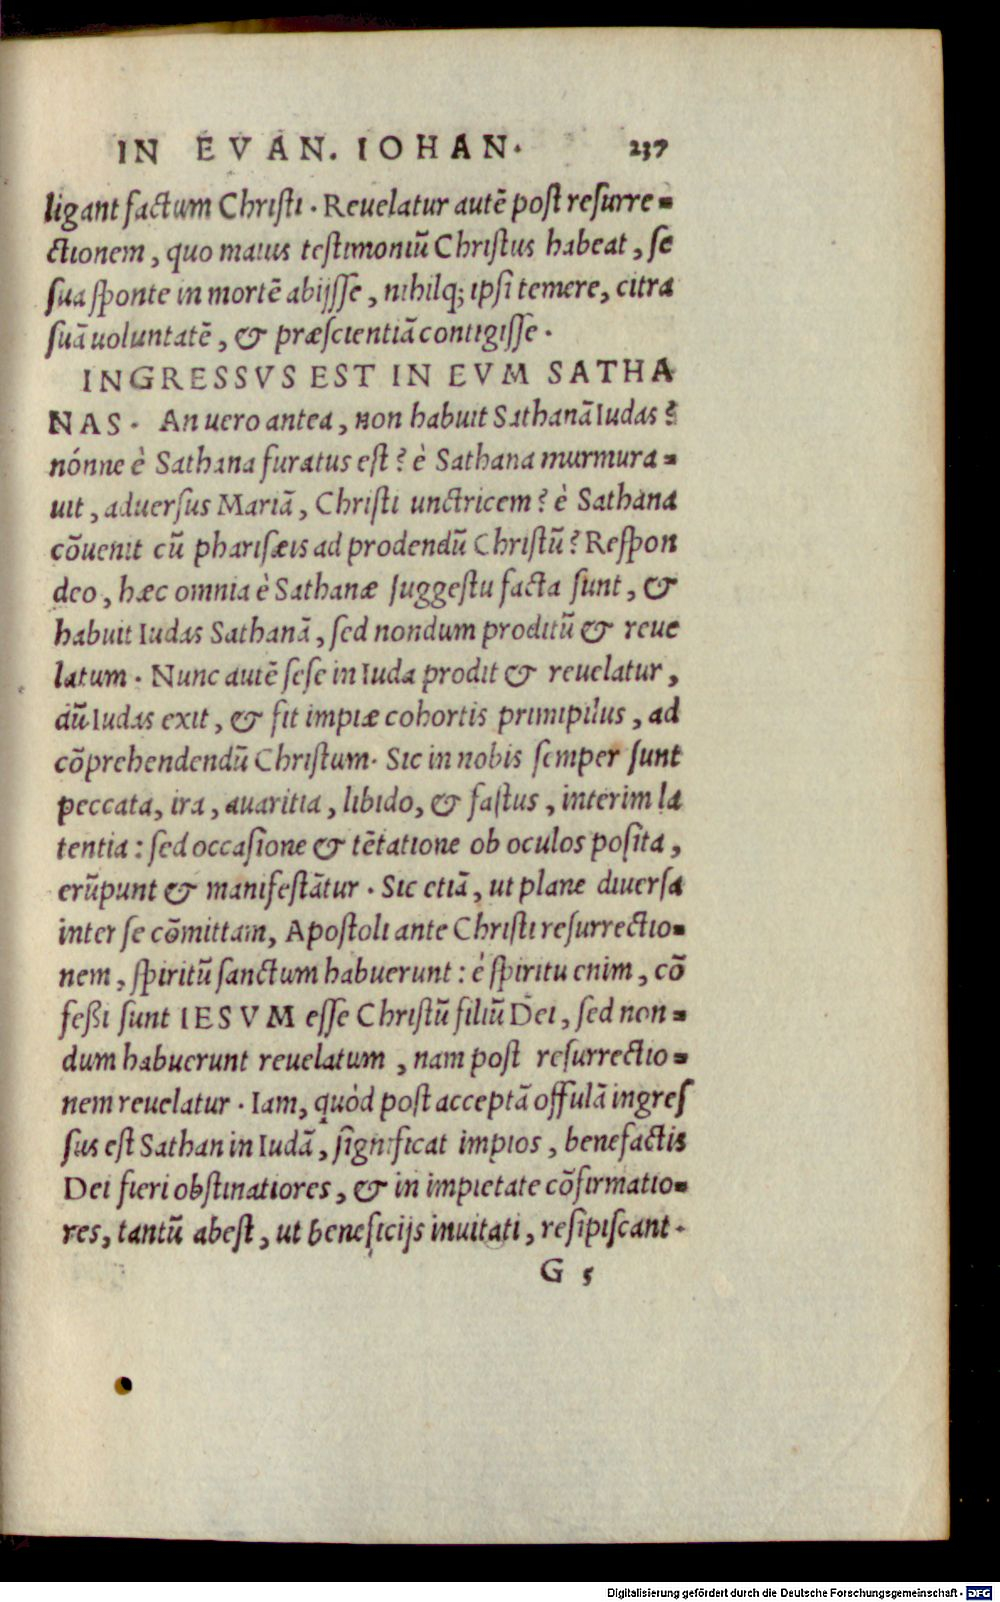 IN EVAN. IOHAN. 237
ligant factum Christi. Reuelatur autē post resurre-
ctionem, quo maius testimoniū Christus habeat, se
sua sponte in mortē abijsse, nihilq; ipsi temere, citra
suā uoluntatē, & præscientiā contigisse.
INGRESSVS EST IN EVM SATHA
NAS. An uero antea, non habuit Sathanā Iudas?
nónne è Sathana furatus est? è Sathana murmura-
uit, aduersus Mariā, Christi unctricem? è Sathana
cōuenit cū pharisæis ad prodendū Christū? Respon
deo, hæc omnia è Sathanæ suggestu facta sunt, &
habuit Iudas Sathanā, sed nondum proditū & reue
latum. Nunc autē sese in Iuda prodit & reuelatur,
dū Iudas exit, & fit impiæ cohortis primipilus, ad
cōprehendendū Christum. Sic in nobis semper sunt
peccata, ira, auaritia, libido, & fastus, interim la
tentia: sed occasione & tētatione ob oculos posita,
erūpunt & manifestātur. Sic etiā, ut plane diuersa
inter se cōmittam, Apostoli ante Christi resurrectio-
nem, spiritū sanctum habuerunt: è spiritu enim, cō
feßi sunt IESVM esse Christū filiū Dei, sed non-
dum habuerunt reuelatum, nam post resurrectio-
nem reuelatur. Iam, quòd post acceptā offulā ingres
sus est Sathan in Iudā, significat impios, benefactis
Dei fieri obstinatiores, & in impietate cōfirmatio-
res, tantū abest, ut beneficijs inuitati, resipiscant.
G 5
Digitalisierung gefördert durch die Deutsche Forschungsgemeinschaft - DFG